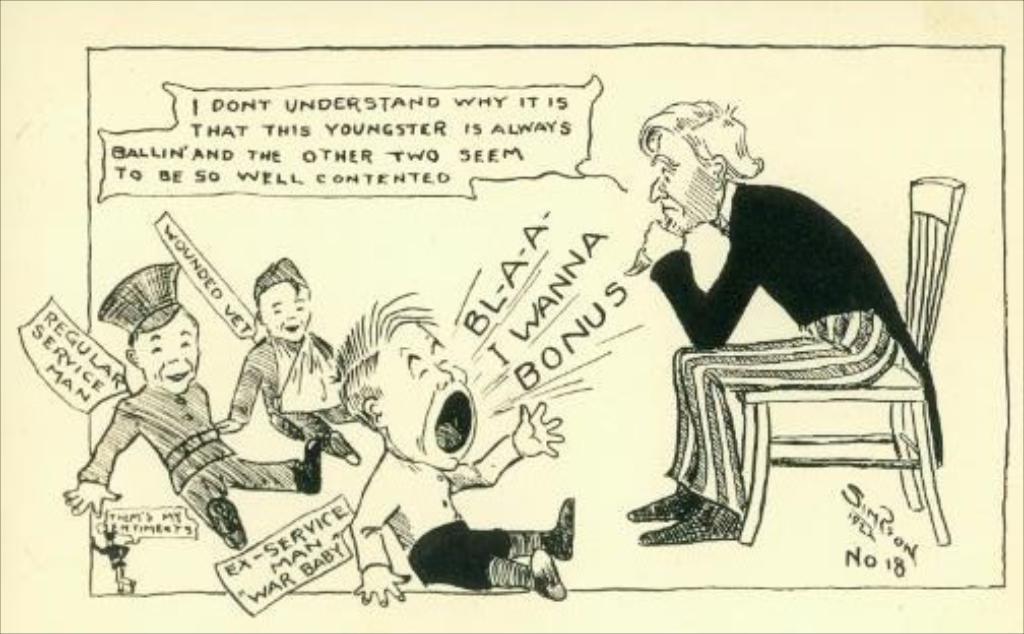 I DONT UNDERSTAND WHY IT IS
THAT THIS YOUNGSTER IS ALWAYS
BALLIN' AND THE OTHER TWO SEEM
TO BE SO WELL CONTENTED
WOUNDED VET
REGULAR
SERVICE
MAN
BL-A-A'
I WANNA
BONUS
THEM'S MY
SENTIMENTS
EX-SERVICE
MAN
"WAR BABY"
SIMPSON
1922
No 18